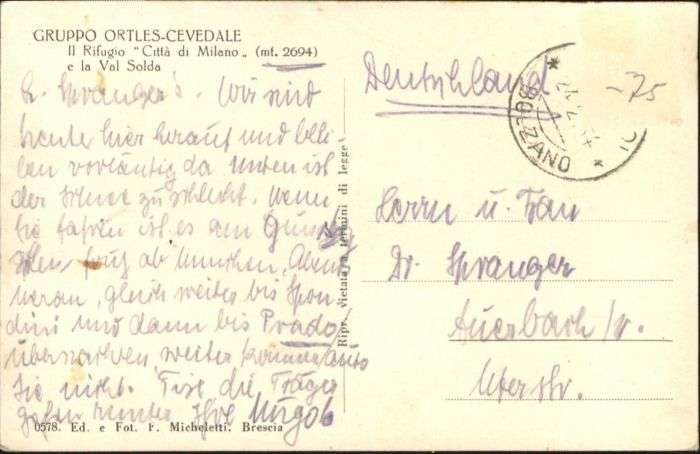 GRUPPO ORTLES-CEVEDALE
Il Rifugio "Città di Milano„ (mt. 2694)
e la Val Solda
Spranger's. Wir sind
heute hier herauf und
vorläufig da unten ist
der Schnee zu schlecht. Wenn
Sie fahren ist es am
früh ab München, Abend
Meran, gleich weiter bis Spon-
dini und dann bis Prado
übernachten weiter kommen
Sie nicht. die Träger
Ihre
0578. Ed. e Fot. F. Micheletti. Brescia
Ripr. vietata a termini di legge
Deutschland
BOLZANO
-75
Herrn u. Frau
Dr. Spranger
Auerbach/V.